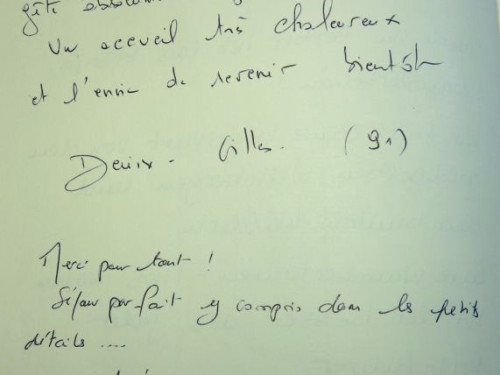 gîte
Un accueil très chaleureux
et l'envie de revenir bientôt
Denis. Gilles. (91)
Merci pour tout !
Séjour parfait y compris dans les petits
détails ....